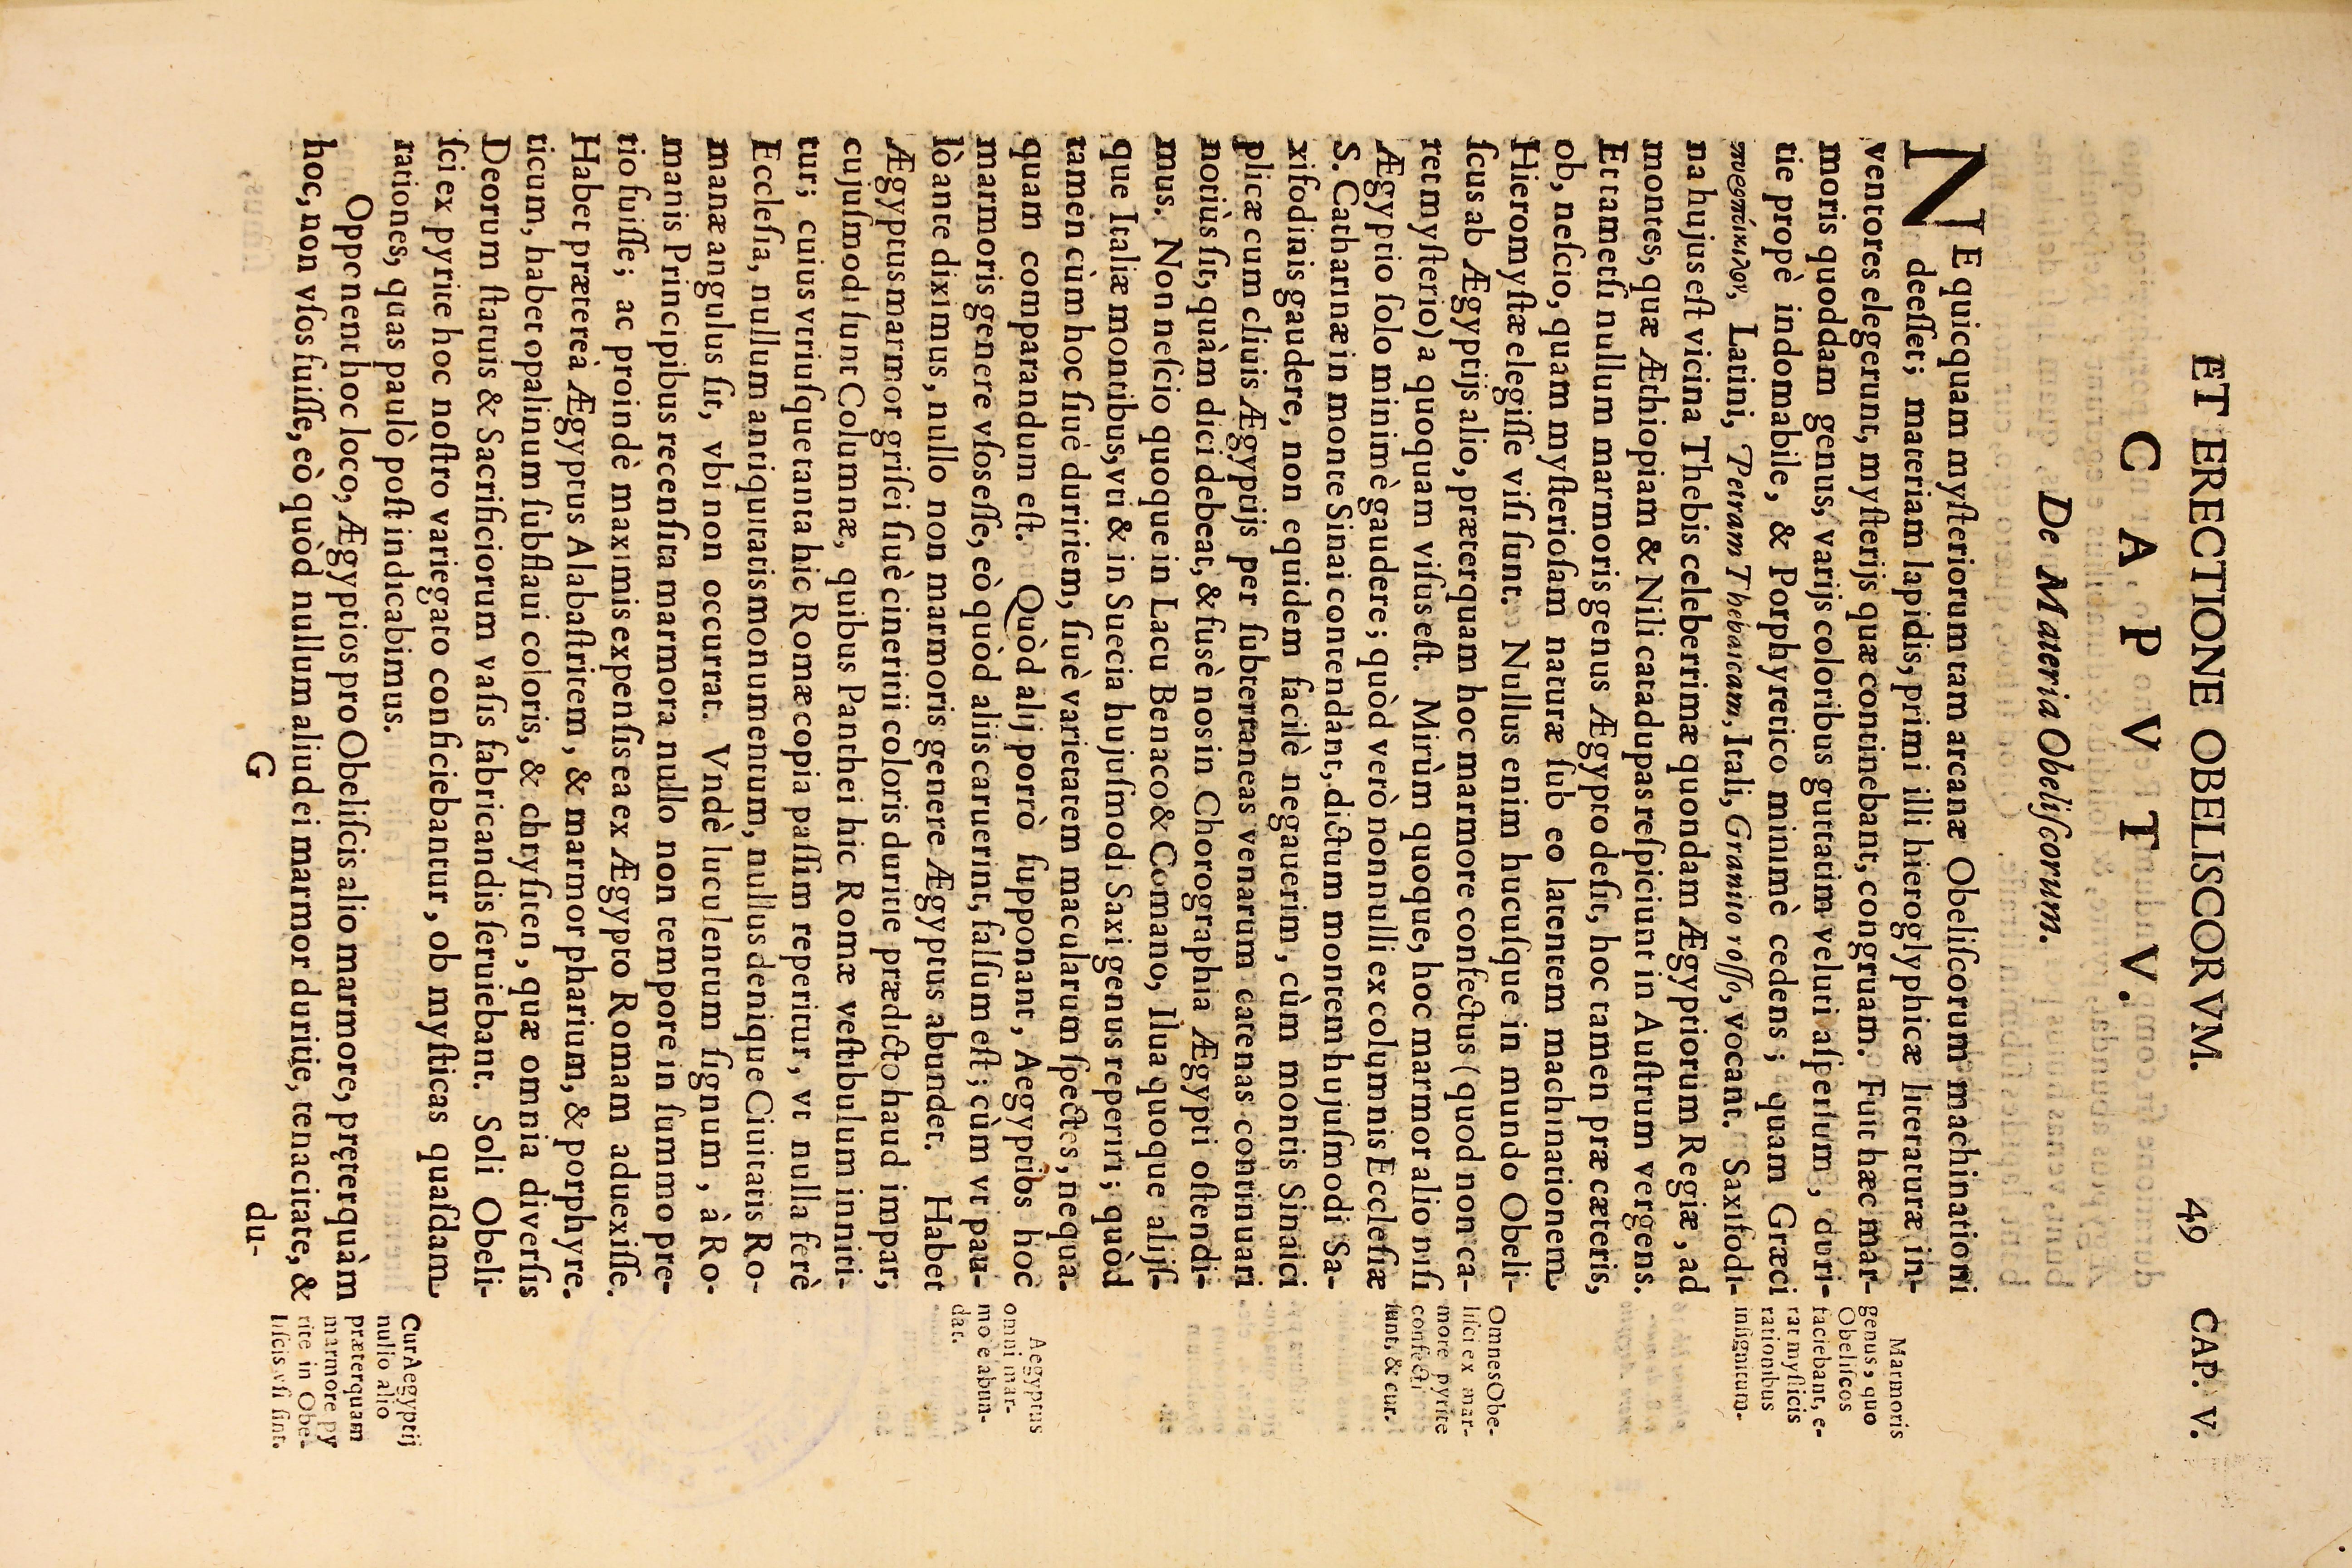 ET ERECTIONE OBELISCORVM. 49 CAP. V.
C A P V T V.
De Materia Obeliſcorum.
NE quicquam myſteriorum tam arcanæ Obeliſcorum machinationi
deeſſet; materiam lapidis, primi illi hieroglyphicæ literaturæ in-
ventores elegerunt, myſterijs quæ continebant, congruam. Fuit hæc mar-
moris quoddam genus, varijs coloribus guttatim veluti aſperſum, duri-
tie propè indomabile, & Porphyretico minimè cedens; quam Græci
πυρποίκιλον, Latini, Petram Thebaicam, Itali, Granito roſſo, vocant. Saxifodi-
na hujus eſt vicina Thebis celeberrimæ quondam Ægyptiorum Regiæ, ad
montes, quæ Æthiopiam & Nili catadupas reſpiciunt in Auſtrum vergens.
Et tametſi nullum marmoris genus Ægypto deſit, hoc tamen præ cæteris,
ob, neſcio, quam myſterioſam naturæ ſub eo latentem machinationem
Hieromyſtæ elegiſſe viſi ſunt. Nullus enim hucuſque in mundo Obeli-
ſcus ab Ægyptijs alio, præterquam hoc marmore confectus (quod non ca-
ret myſterio) a quoquam viſus eſt. Mirùm quoque, hoc marmor alio niſi
Ægyptio ſolo minimè gaudere; quòd verò nonnulli ex columnis Eccleſiæ
S. Catharinæ in monte Sinai contendant, dictum montem hujuſmodi Sa-
xifodinis gaudere, non equidem facilè negauerim, cùm montis Sinaici
plicæ cum cliuis Ægyptijs per ſubterraneas venarum catenas continuari
notiùs ſit, quàm dici debeat, & fusè nos in Chorographia Ægypti oſtendi-
mus. Non neſcio quoque in Lacu Benaco & Comano, Ilua quoque alijſ-
que Italiæ montibus, vti & in Suecia hujuſmodi Saxi genus reperiri; quòd
tamen cùm hoc ſiuè duritiem, ſiuè varietatem macularum ſpectes, nequa-
quam comparandum eſt. Quòd alij porrò ſupponant, Aegyptios hoc
marmoris genere vſos eſſe, eò quòd aliis caruerint, falſum eſt; cùm vt pau-
lò ante diximus, nullo non marmoris genere Ægyptus abundet. Habet
Ægyptus marmor griſei ſiuè cineritii coloris duritie prædicto haud impar;
cujuſmodi ſunt Columnæ, quibus Panthei hic Romæ veſtibulum inniti-
tur; cuius vtriuſque tanta hic Romæ copia paſſim reperitur, vt nulla ferè
Eccleſia, nullum antiquitatis monumentum, nullus denique Ciuitatis Ro-
manæ angulus ſit, vbi non occurrat. Vndè luculentum ſignum, à Ro-
manis Principibus recenſita marmora nullo non tempore in ſummo pre-
tio fuiſſe; ac proindè maximis expenſis ea ex Ægypto Romam aduexiſſe.
Habet prætereà Ægyptus Alabaſtritem, & marmor pharium, & porphyre-
ticum, habet opalinum ſubflaui coloris, & chryſiten, quæ omnia diverſis
Deorum ſtatuis & Sacrificiorum vaſis fabricandis ſeruiebant. Soli Obeli-
ſci ex pyrite hoc noſtro variegato conficiebantur, ob myſticas quaſdam
rationes, quas paulò poſt indicabimus.
Opponent hoc loco, Ægyptios pro Obeliſcis alio marmore, pręterquàm
hoc, non vſos fuiſſe, eò quòd nullum aliud ei marmor duritie, tenacitate, &
G du-
Marmoris
genus, quo
Obeliſcos
faciebant, e-
rat myſticis
rationibus
inſignitum.
Omnes Obe-
liſci ex mar-
more pyrite
confecti
ſunt, & cur.
Aegyptus
omni mar-
more abun-
dat.
Cur Aegyptij
nullo alio
præterquam
marmore py
rite in Obe-
liſcis vſi ſint.